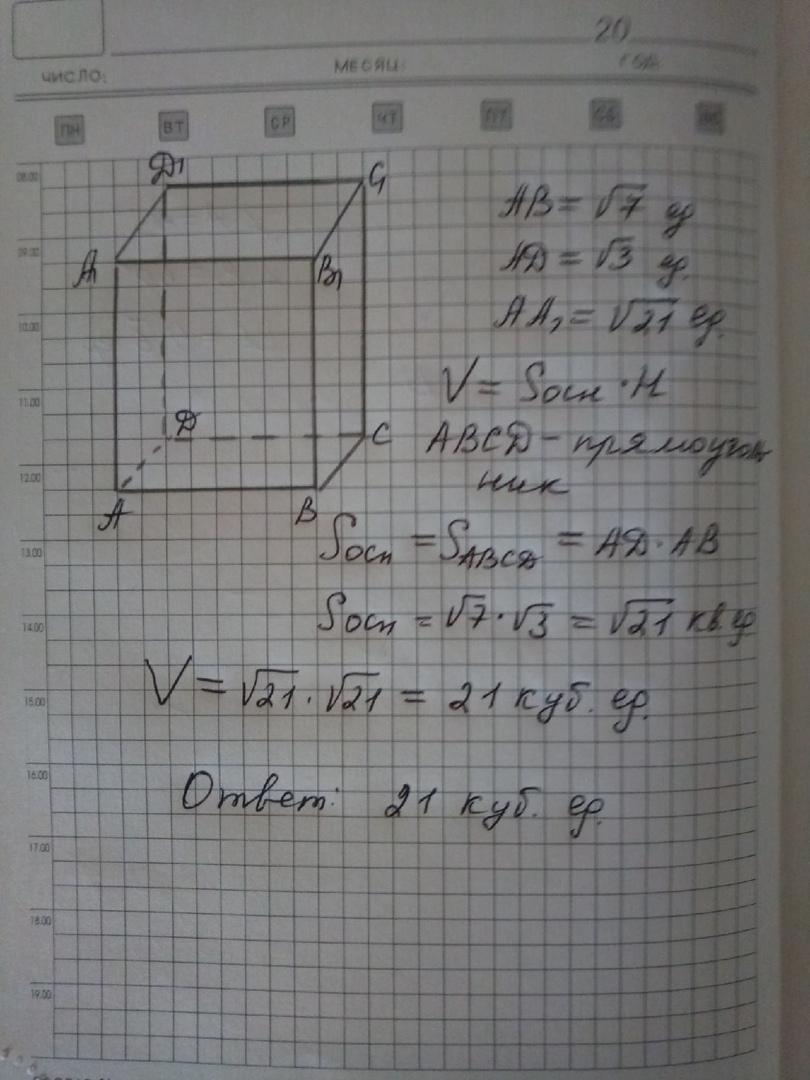 20
ЧИСЛО: МЕСЯЦ: ГОД:
ПН ВТ СР ЧТ ПТ СБ ВС
08.00
09.00
10.00
11.00
12.00
13.00
14.00
15.00
16.00
17.00
18.00
19.00
D1 C1
A1 B1
D C
A B
AB = √7 ед
AD = √3 ед.
AA1 = √21 ед.
V = Sосн · H
ABCD - прямоуголь
ник
Sосн = SABCD = AD · AB
Sосн = √7 · √3 = √21 кв.ед
V = √21 · √21 = 21 куб. ед.
Ответ: 21 куб. ед.